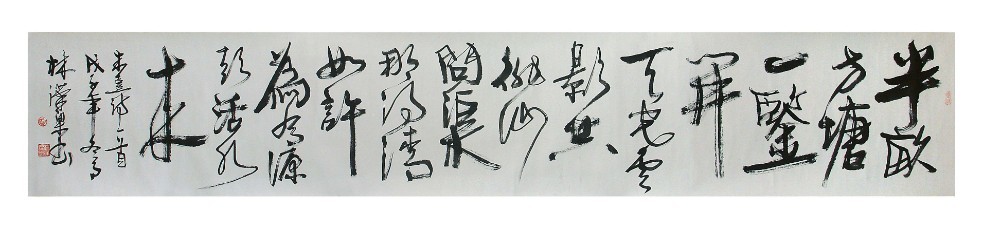 半畝
方塘
一鑒
開
天光雲
影共
徘徊
問渠
那得清
如許
為有源
頭活水
來
朱熹詩一首
戊子年冬月
林書